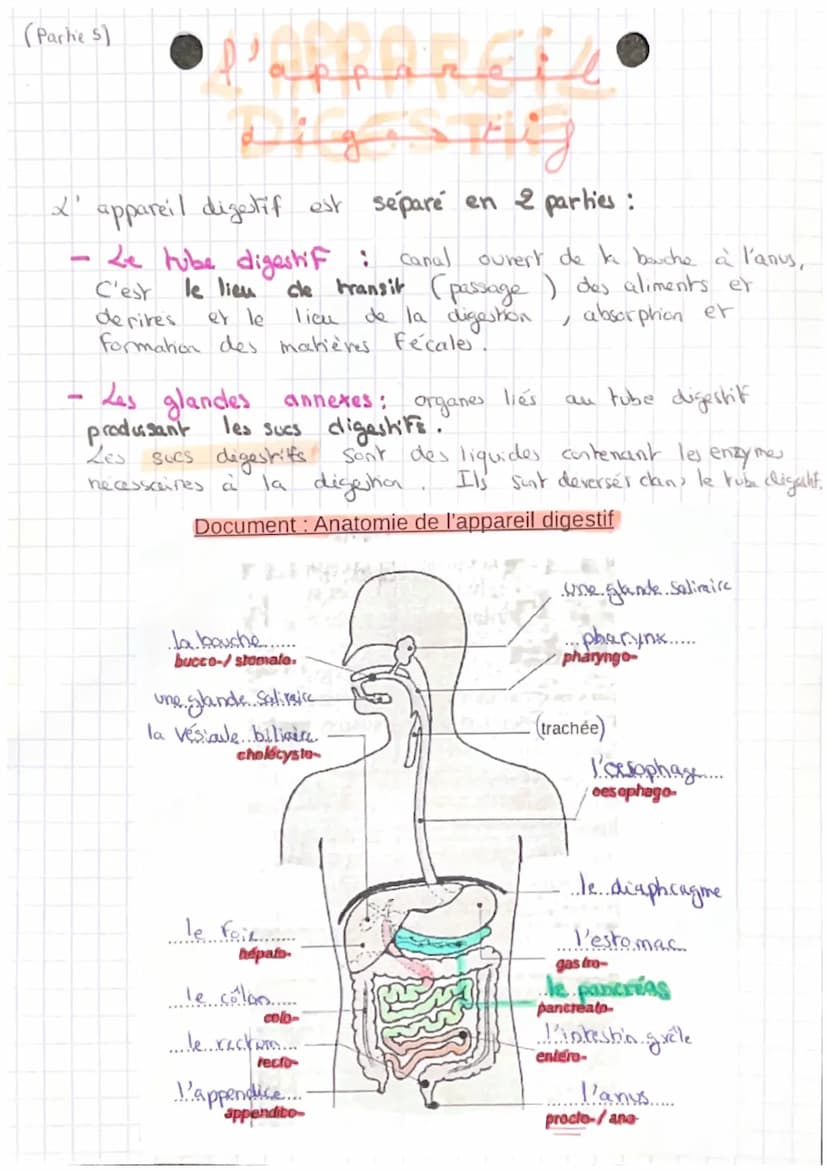 (Partie 5)
L'APPAREIL
l'appareil
DIGESTIF
digestif
L'appareil digestif est séparé en 2 parties :
- Le tube digestif : canal ouvert de la bouche à l'anus,
C'est le lieu de transit (passage) des aliments et
derires et le lieu de la digestion, absorption et
formation des matières fécales.
- Les glandes annexes : organes liés au tube digestif
produisant les sucs digestifs.
Les sucs digestifs sont des liquides contenant les enzymes
nécessaires à la digestion. Ils sont deversés dans le tube digestif.
Document : Anatomie de l'appareil digestif
une glande salivaire
la bouche
bucco-/ stomato-
pharynx
pharyngo-
une glande salivaire
la vésicule biliaire
cholécysto-
(trachée)
l'oesophage
oesophago-
le diaphragme
le foie
hépato-
l'estomac
gastro-
le pancréas
pancréato-
le côlon
colo-
le rectum
recto-
l'intestin grêle
entéro-
l'appendice
appendico-
l'anus
procto-/ ano-